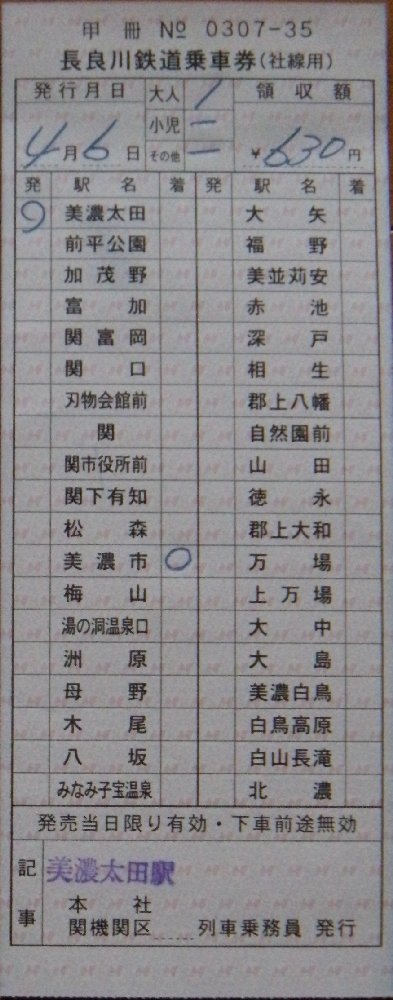 甲 冊 № 0307-35
長良川鉄道乗車券(社線用)
発行月日 大人 1 領収額
4月6日 小児 ー ¥630円
その他 ー
発 駅名 着 発 駅名 着
○ 美濃太田 大矢
前平公園 福野
加茂野 美並苅安
富加 赤池
関富岡 深戸
関口 相生
刃物会館前 郡上八幡
関 自然園前
関市役所前 山田
関下有知 徳永
松森 郡上大和
美濃市 ○ 万場
梅山 上万場
湯の洞温泉口 大中
洲原 大島
母野 美濃白鳥
木尾 白鳥高原
八坂 白山長滝
みなみ子宝温泉 北濃
発売当日限り有効・下車前途無効
記事 美濃太田駅
本社
関機関区 列車乗務員 発行